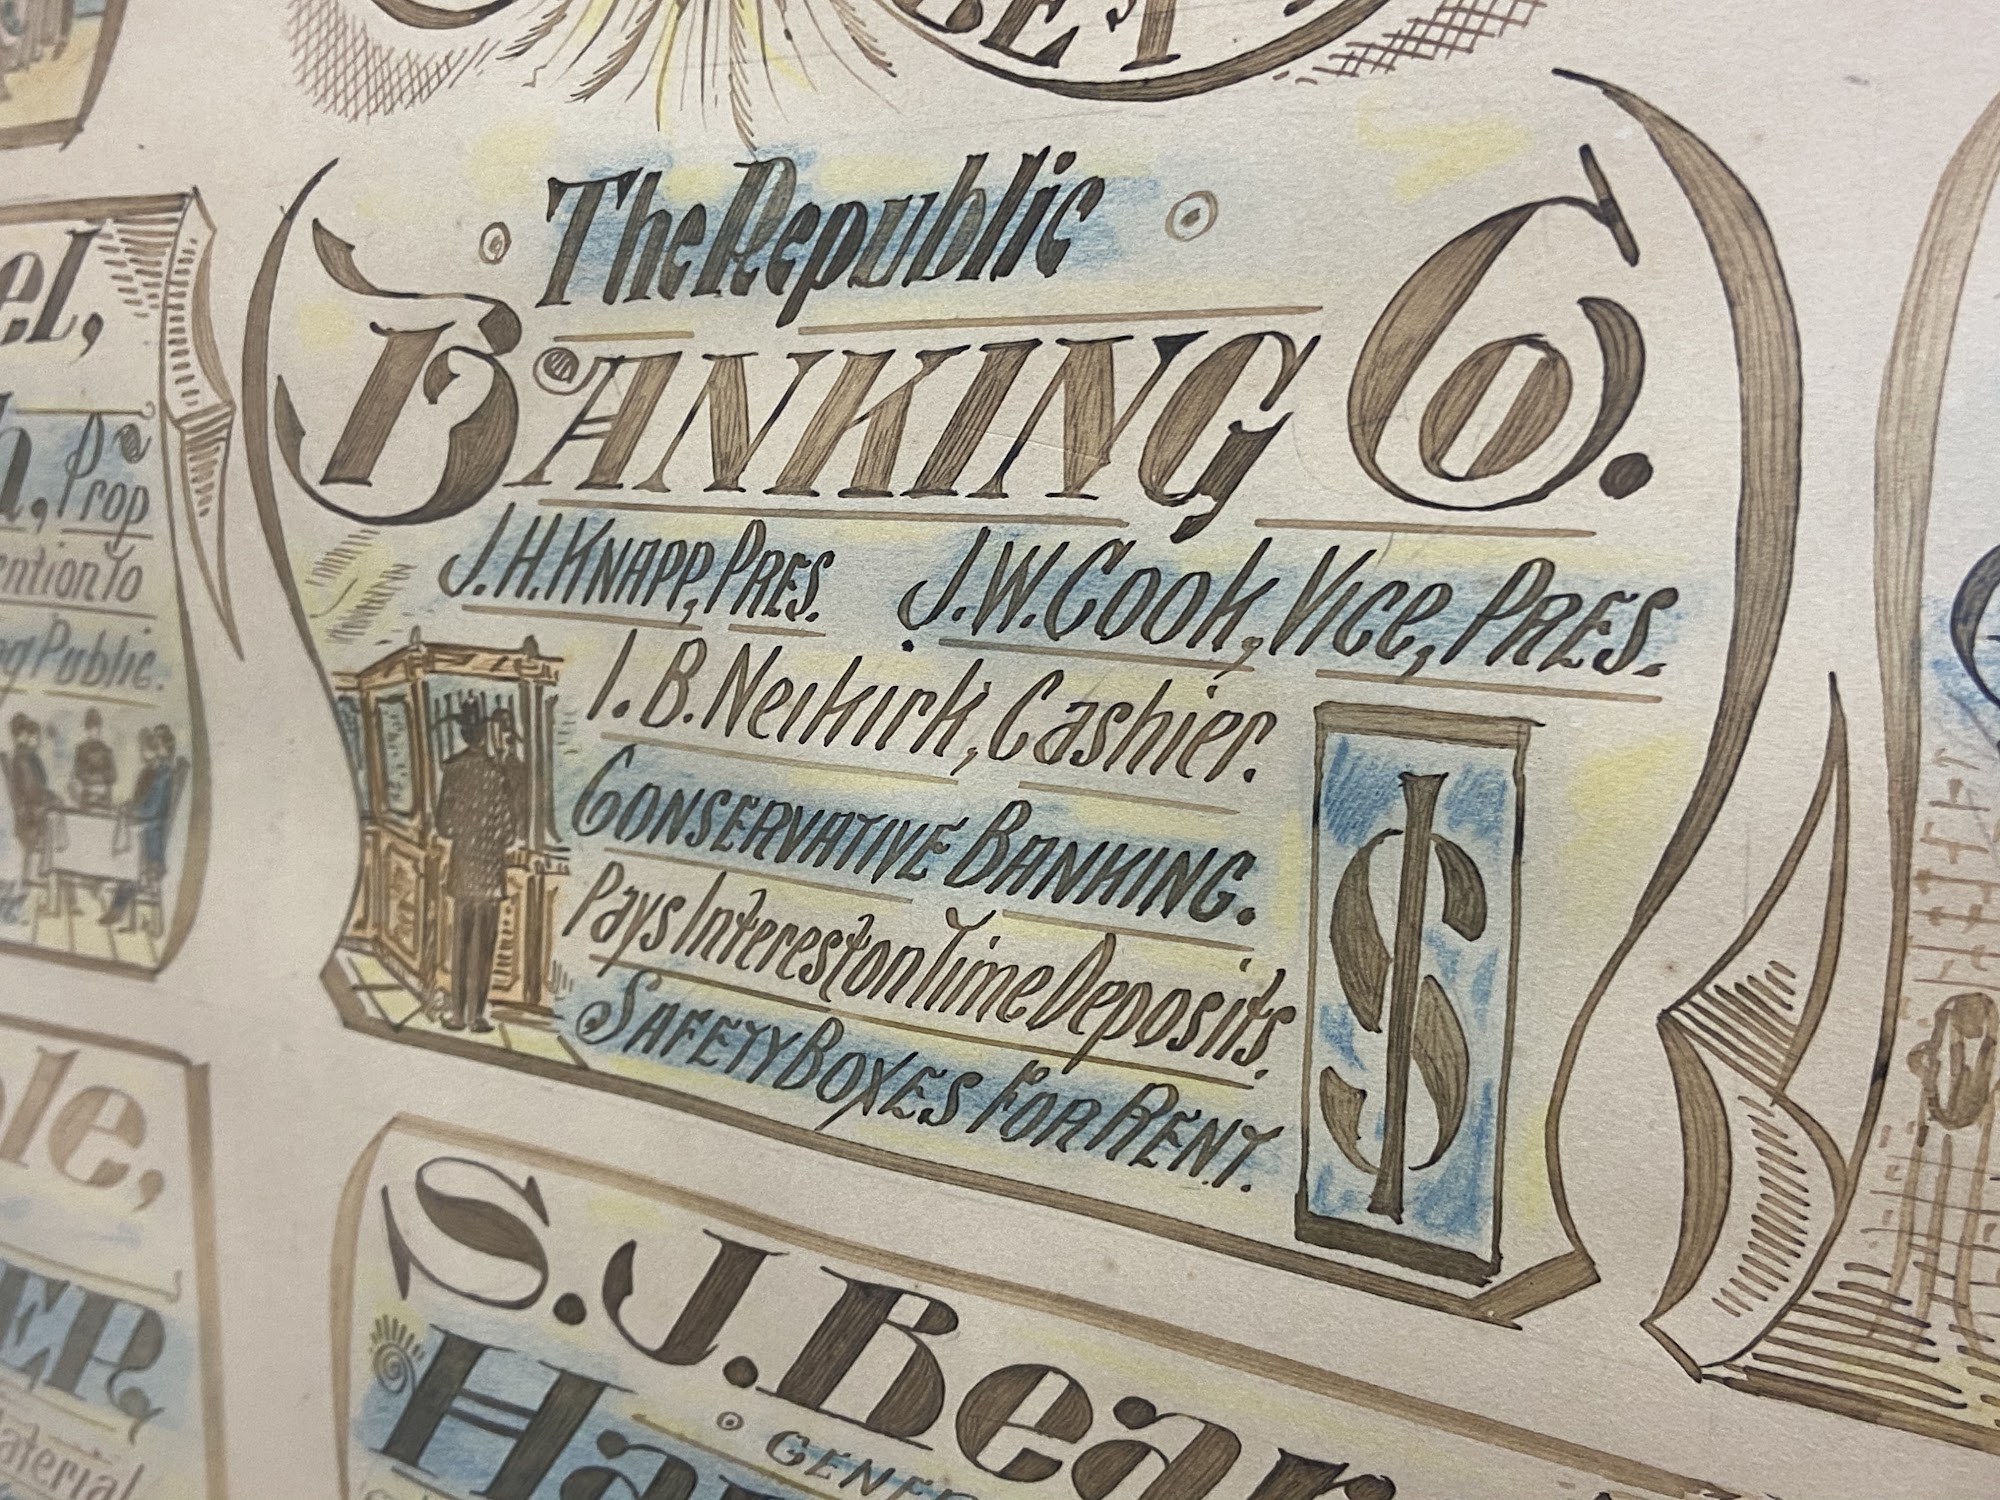 The Republic
BANKING Co.
J.H. KNAPP, PRES. J.W. Cook, Vice, PRES.
I. B. Neikirk, Cashier.
CONSERVATIVE BANKING.
Pays Interest on Time Deposits.
SAFETY BOXES FOR RENT.
$
el,
h, Prop
ention To
ng Public.
ple,
ER,
Material
S. J. Bear
Har
GENE